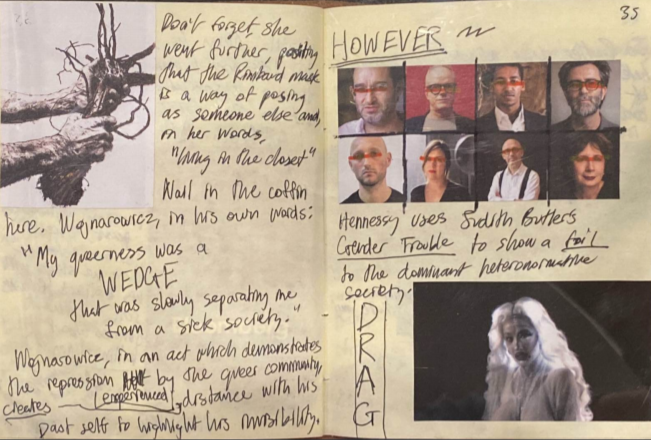 Don't forget she
went further positing
that the Rimbaud mask
is a way of posing
as someone else and,
in her words,
"living in the closet"
Nail in the coffin
here. Wojnarowicz, in his own words:
"My queerness was a
WEDGE
that was slowly separating me
from a sick society."
Wojnarowicz, in an act which demonstrates
the repression by the queer community,
(experienced)
creates distance with his
past self to highlight his invisibility.
35
HOWEVER
Hennessy uses Judith Butler's
Gender Trouble to show a foil
to the dominant heteronormative
society.
DRAG